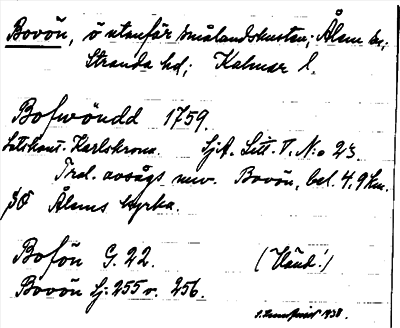 Bovön, ö utanför Smålandskusten; Ålem sn;
Stranda hd; Kalmar l.
Bofwöndd 1759.
Lotskont. Karlskrona. SjA. Litt. V. No 23.
Trol. avsågs nuv. Bovön, bel. 4,9 km.
SO Ålems kyrka.
Bofön G. 22. (Händ!)
Bovön Sj: 255 v. 256.
1938.